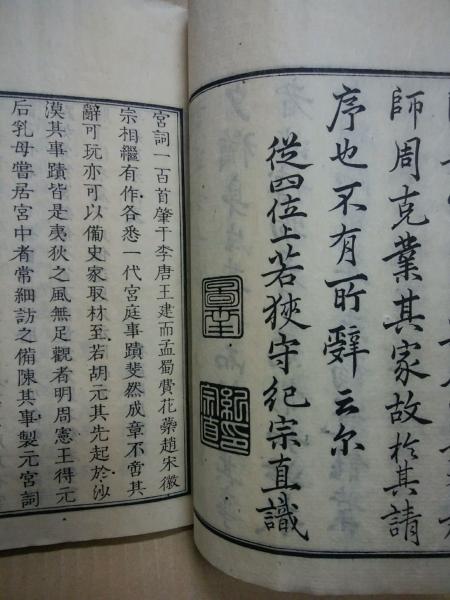 師周克業其家故於其請
序也不有所辭云尔
從四位上若狹守紀宗直識
宮詞一百首肇于李唐王建而孟蜀費花蘂趙宋徽
宗相繼有作各悉一代宮庭事蹟斐然成章不啻其
辭可玩亦可以備史家取材至若胡元其先起於沙
漠其事蹟皆是夷狄之風無足觀者明周憲王得元
后乳母嘗居宮中者常細訪之備陳其事製元宮詞